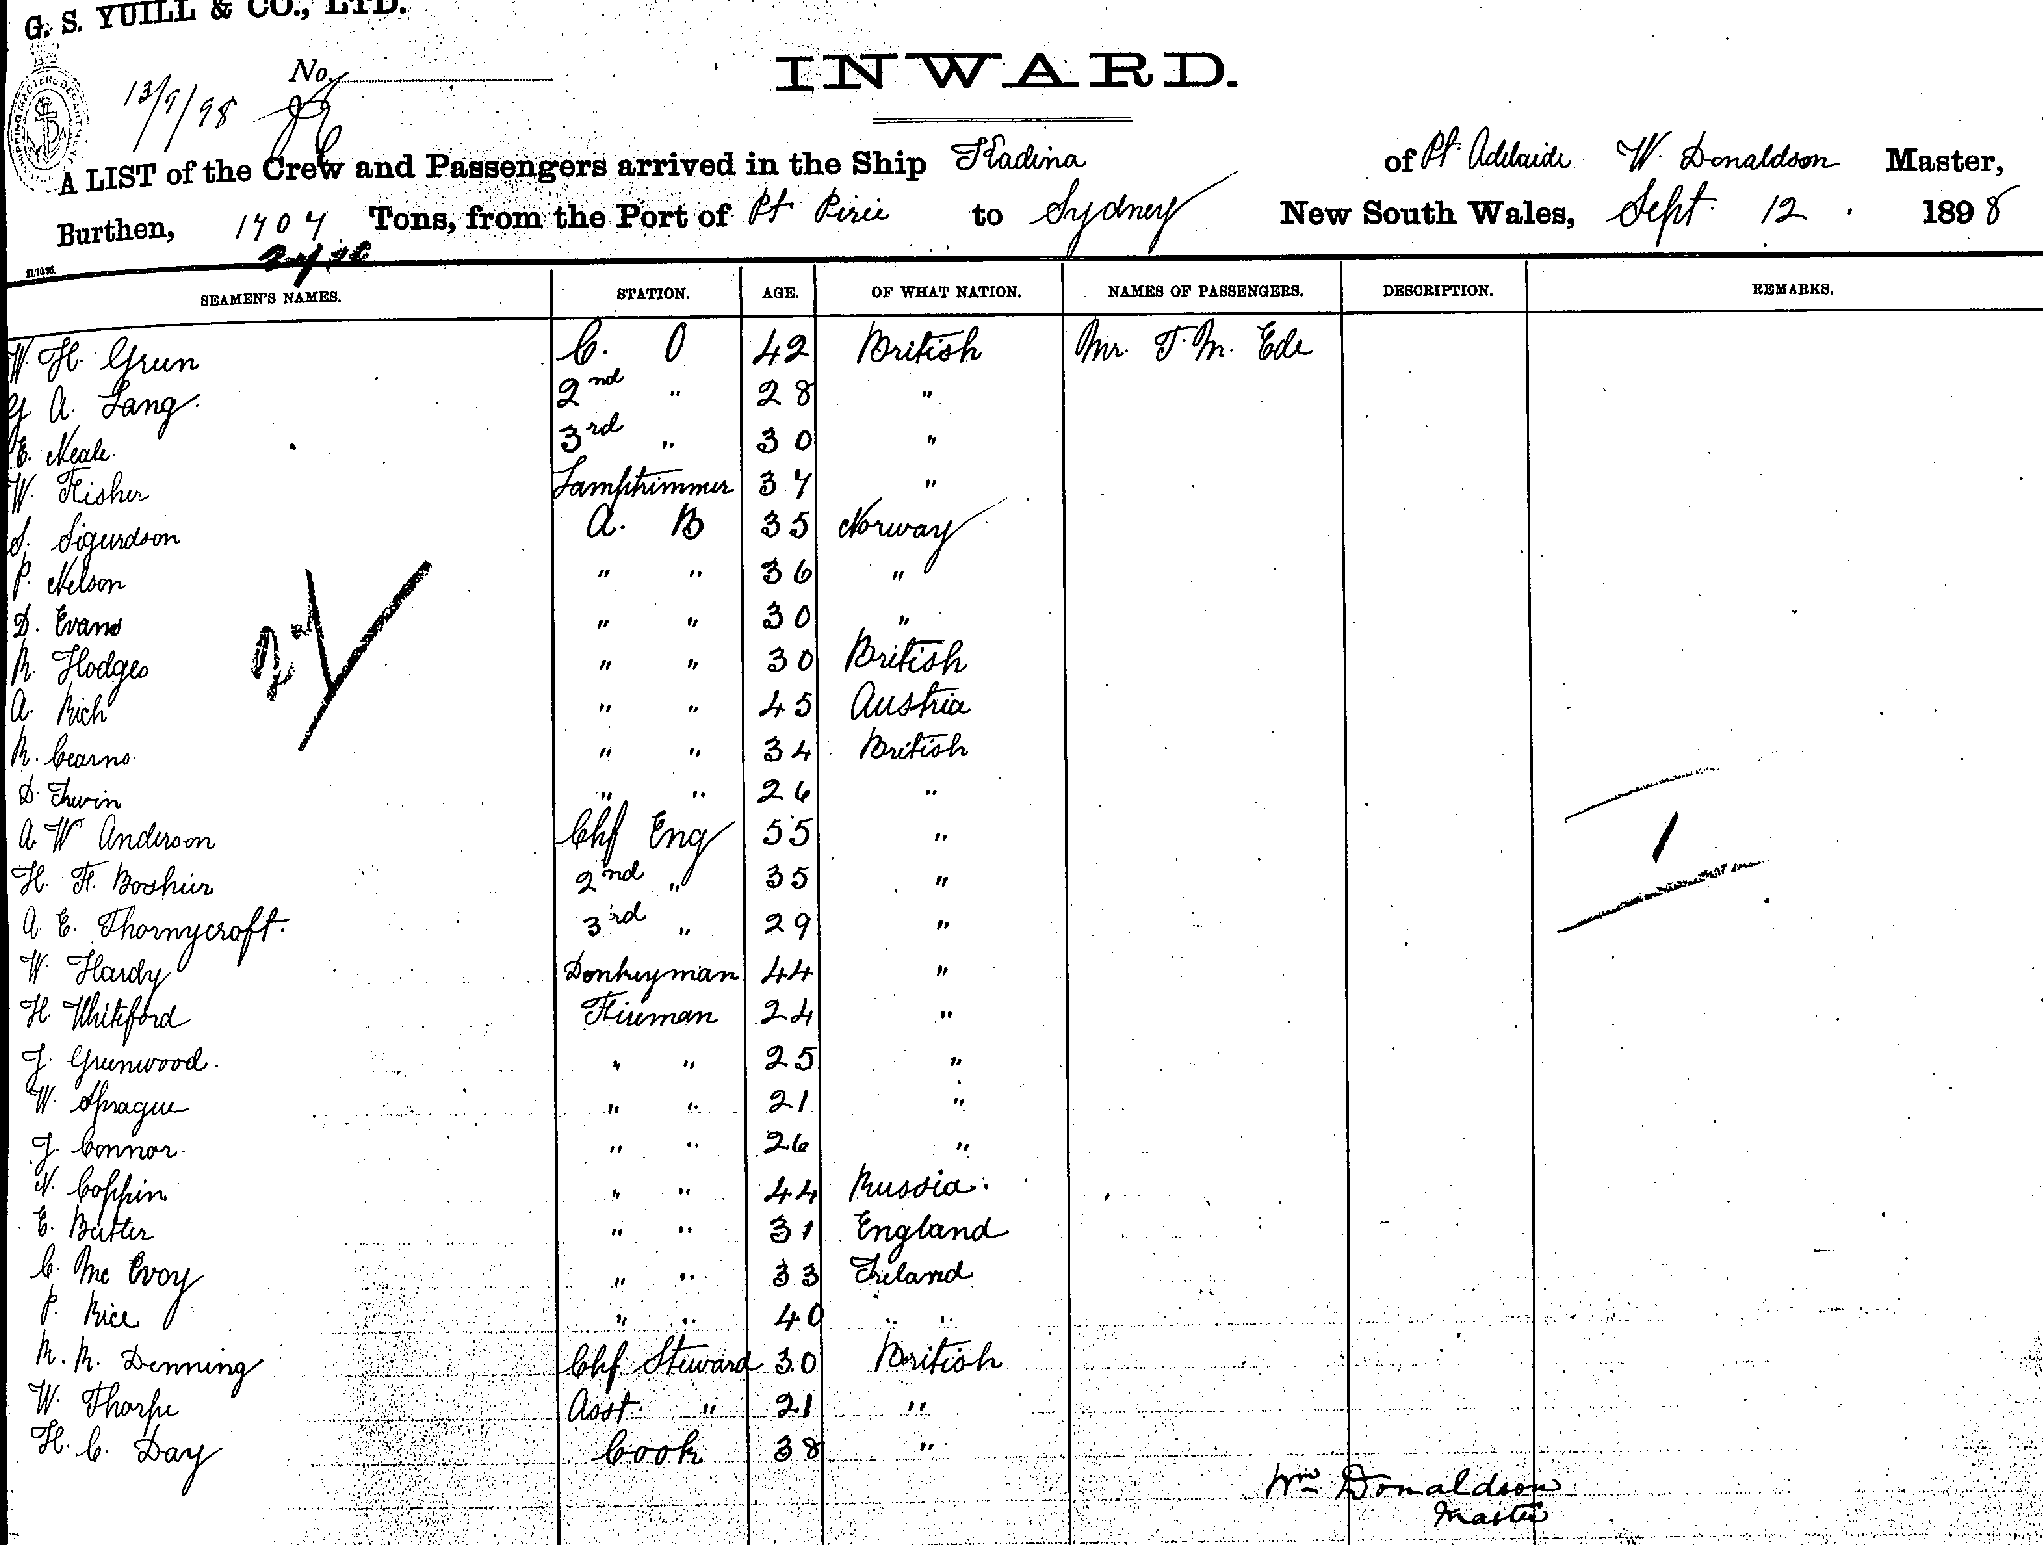 G. S. YUILL & CO., LTD.
No.
13/9/98
INWARD.
A LIST of the Crew and Passengers arrived in the Ship Kadina of Pt. Adelaide W. Donaldson Master,
Burthen, 1707 Tons, from the Port of Pt Pirie to Sydney New South Wales, Sept. 12. 1898
SEAMEN'S NAMES. STATION. AGE. OF WHAT NATION. NAMES OF PASSENGERS. DESCRIPTION. REMARKS.
W. H. Green C. O 42 British Mr. T. M. Ede
A. Lang. 2nd " 28 "
E. Neale. 3rd " 30 "
W. Fisher Lamptrimmer 37 "
S. Sigurdson A. B 35 Norway
P. Nelson " " 36 "
D. Evans " " 30 "
R. Hodges " " 30 British
A. Rich " " 45 Austria
R. Cearns " " 34 British
D. Irwin " " 26 "
A W Anderson Chf Eng 55 "
H. F. Boshier 2nd " 35 "
A E. Thornycroft. 3rd " 29 "
W. Hardy Donkeyman 44 "
H. Whiteford Fireman 24 "
J. Greenwood. " " 25 "
W. Sprague " " 21 "
J. Connor. " " 26 "
N. Coppin " " 44 Russia.
E. Butler " " 31 England
C. Mc Evoy " " 33 Ireland
P. Rice " " 40 " "
R. R. Denning Chf Steward 30 British
W. Thorpe Asst " 21 "
H. C. Day Cook 38 "
Wm Donaldson
Master